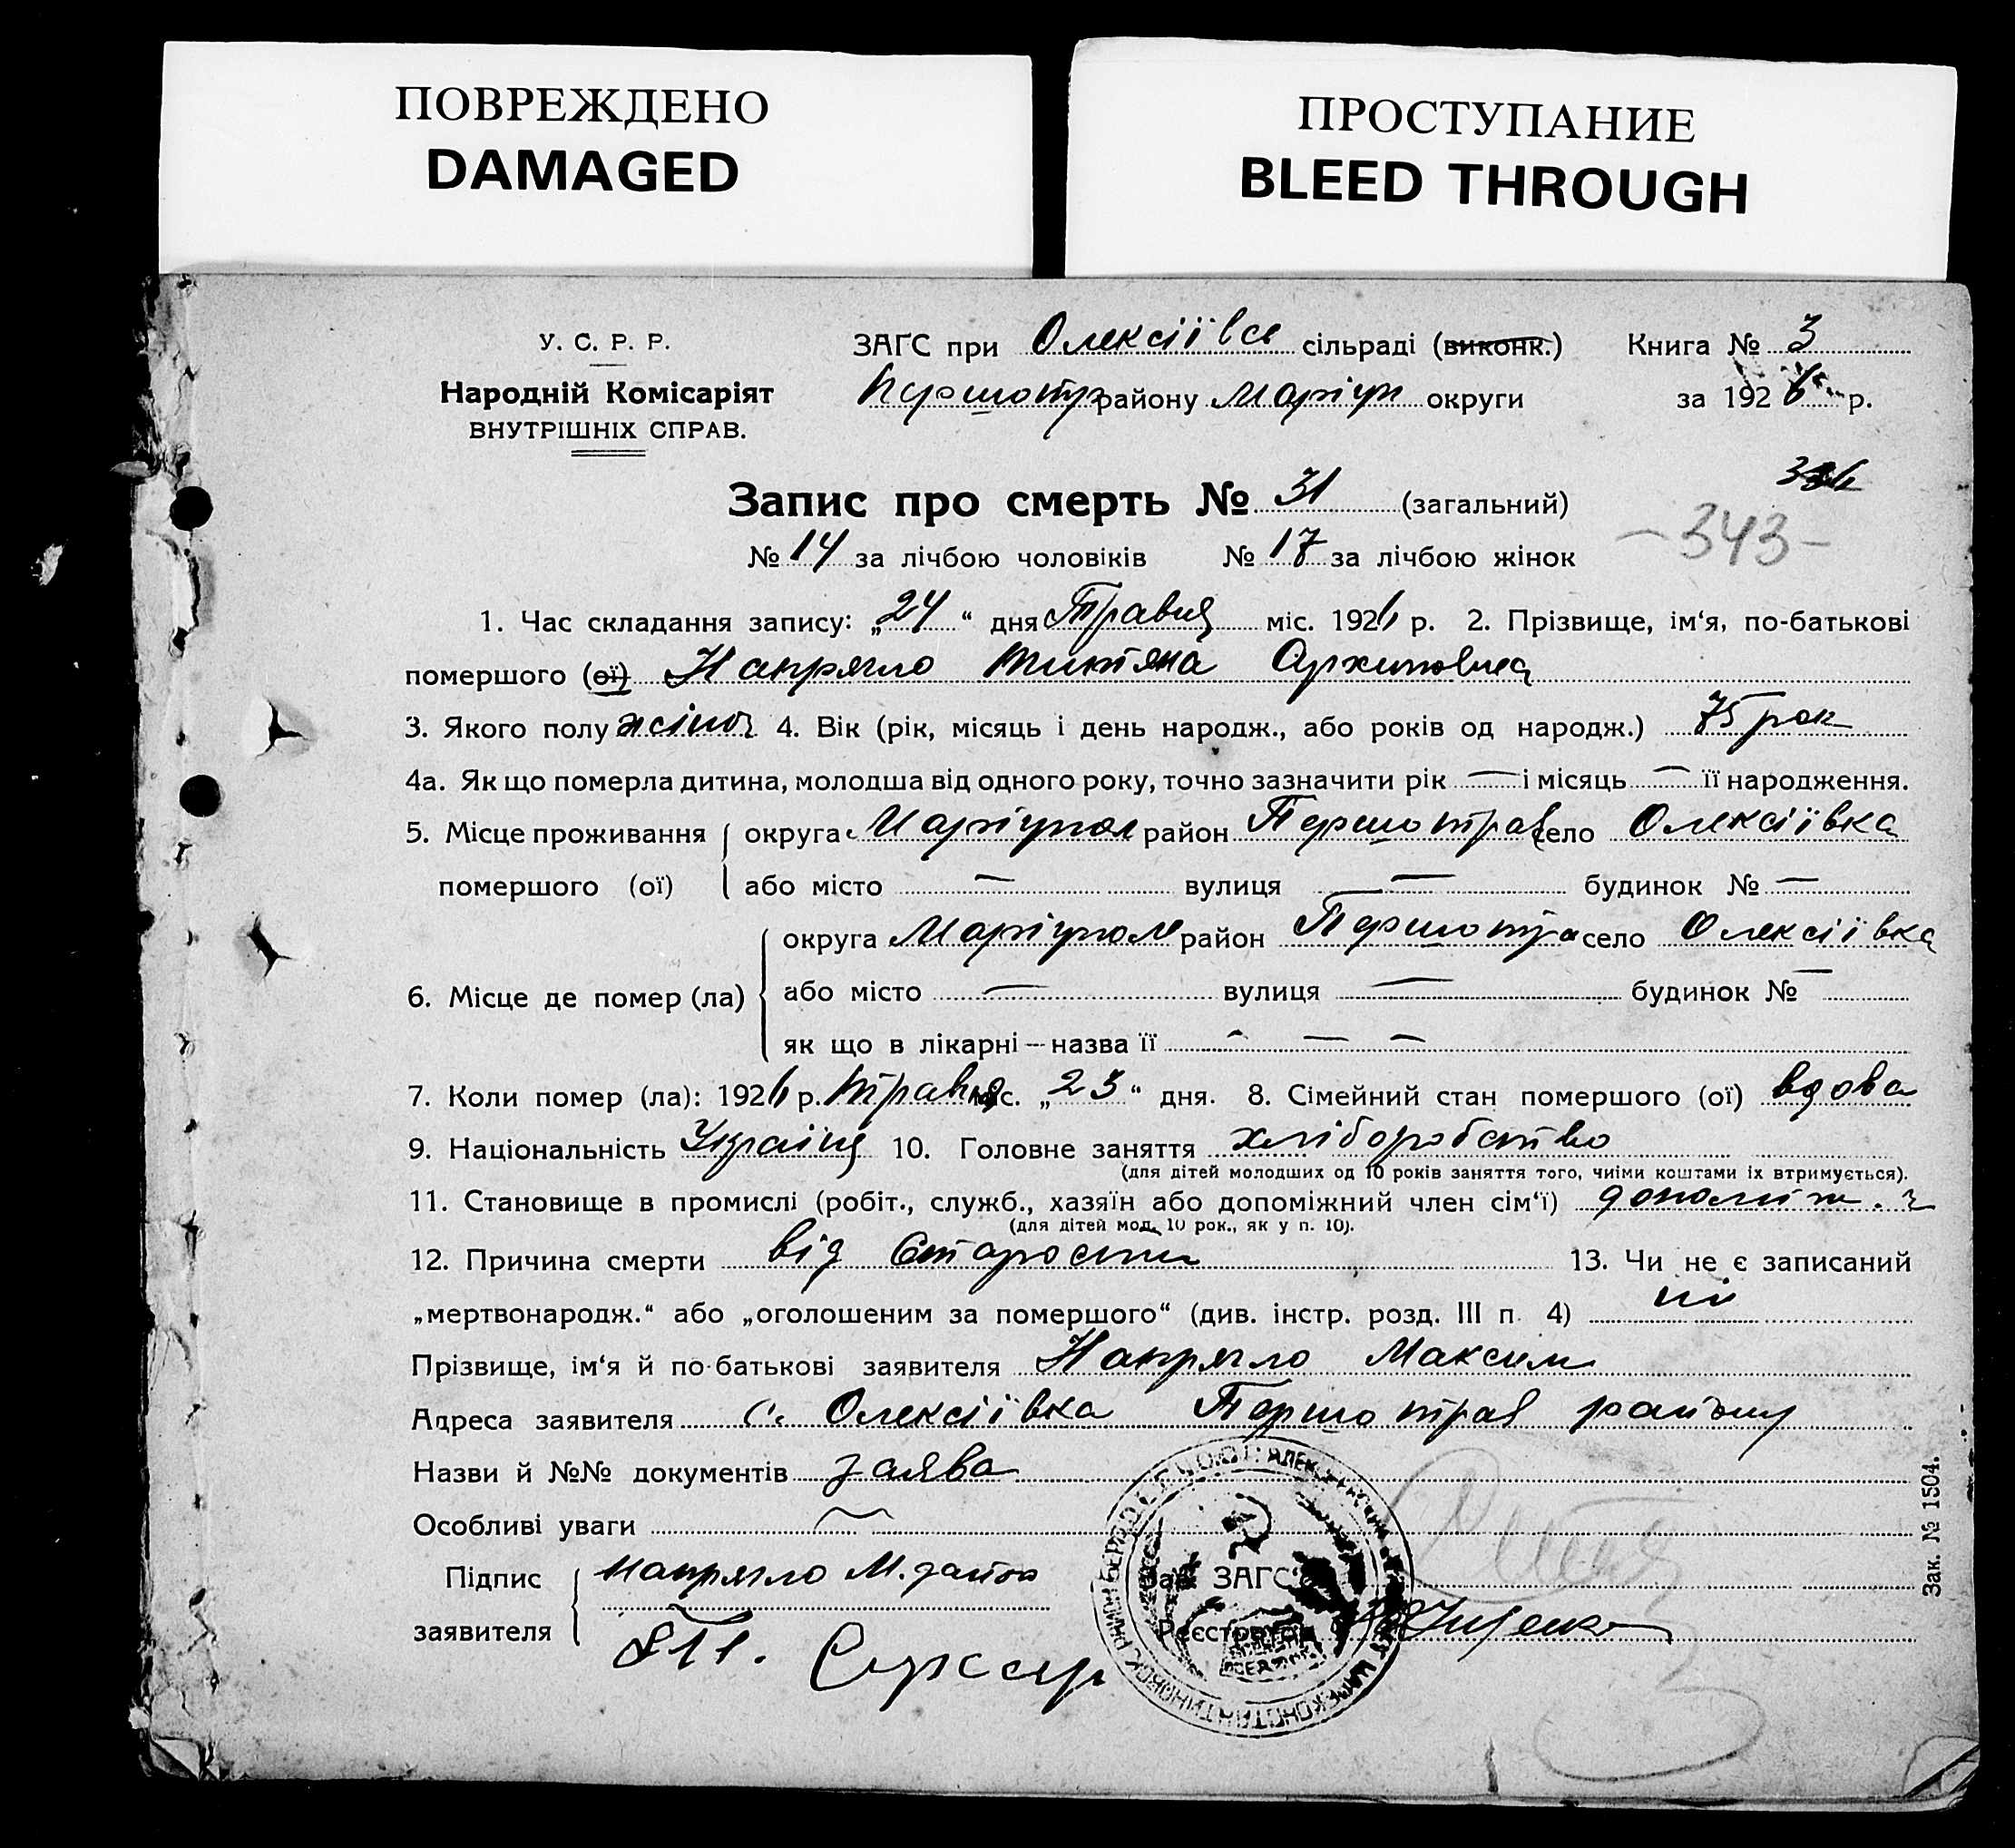 ПОВРЕЖДЕНО
DAMAGED
ПРОСТУПАНИЕ
BLEED THROUGH
У. С. Р. Р.
Народній Комісаріят
ВНУТРІШНІХ СПРАВ.
ЗАГС при Олексіївсь сільраді (виконк.) Книга № 3
Першотр району Маріуп округи за 1926 р.
Запис про смерть № 31 (загальний)
-343-
№ 14 за лічбою чоловіків № 17 за лічбою жінок
1. Час складання запису: „24“ дня Травня міс. 1926 р. 2. Прізвище, ім'я, по-батькові
помершого (ої) Напрягло Тит'яна Архиповна
3. Якого полу жіноч 4. Вік (рік, місяць і день народж., або років од народж.) 75 рок
4а. Як що померла дитина, молодша від одного року, точно зазначити рік — і місяць — її народження.
5. Місце проживання помершого (ої) округа Маріупол район Першотрав село Олексіївка
або місто — вулиця — будинок № —
6. Місце де помер (ла) округа Маріупол район Першотра село Олексіївка
або місто — вулиця — будинок № —
як що в лікарні — назва її — — —
7. Коли помер (ла): 1926 р. Травня міс. „23“ дня. 8. Сімейний стан помершого (ої) вдова
9. Національність Україн 10. Головне заняття хліборобство
(для дітей молодших од 10 років заняття того, чиїми коштами їх втримується).
11. Становище в промислі (робіт., служб., хазяїн або допоміжний член сім'ї) допоміж. ч
(для дітей мод. 10 рок., як у п. 10).
12. Причина смерти від Старости 13. Чи не є записаний
„мертвонародж.“ або „оголошеним за помершого“ (див. інстр. розд. III п. 4) ні
Прізвище, ім'я й по-батькові заявителя Напрягло Максим
Адреса заявителя с. Олексіївка Першотрав району
Назви й №№ документів заява
Особливі уваги —
Підпис заявителя Напрягло М.
Зав. ЗАГС'ом
Реєстратор
Зак. № 1504.